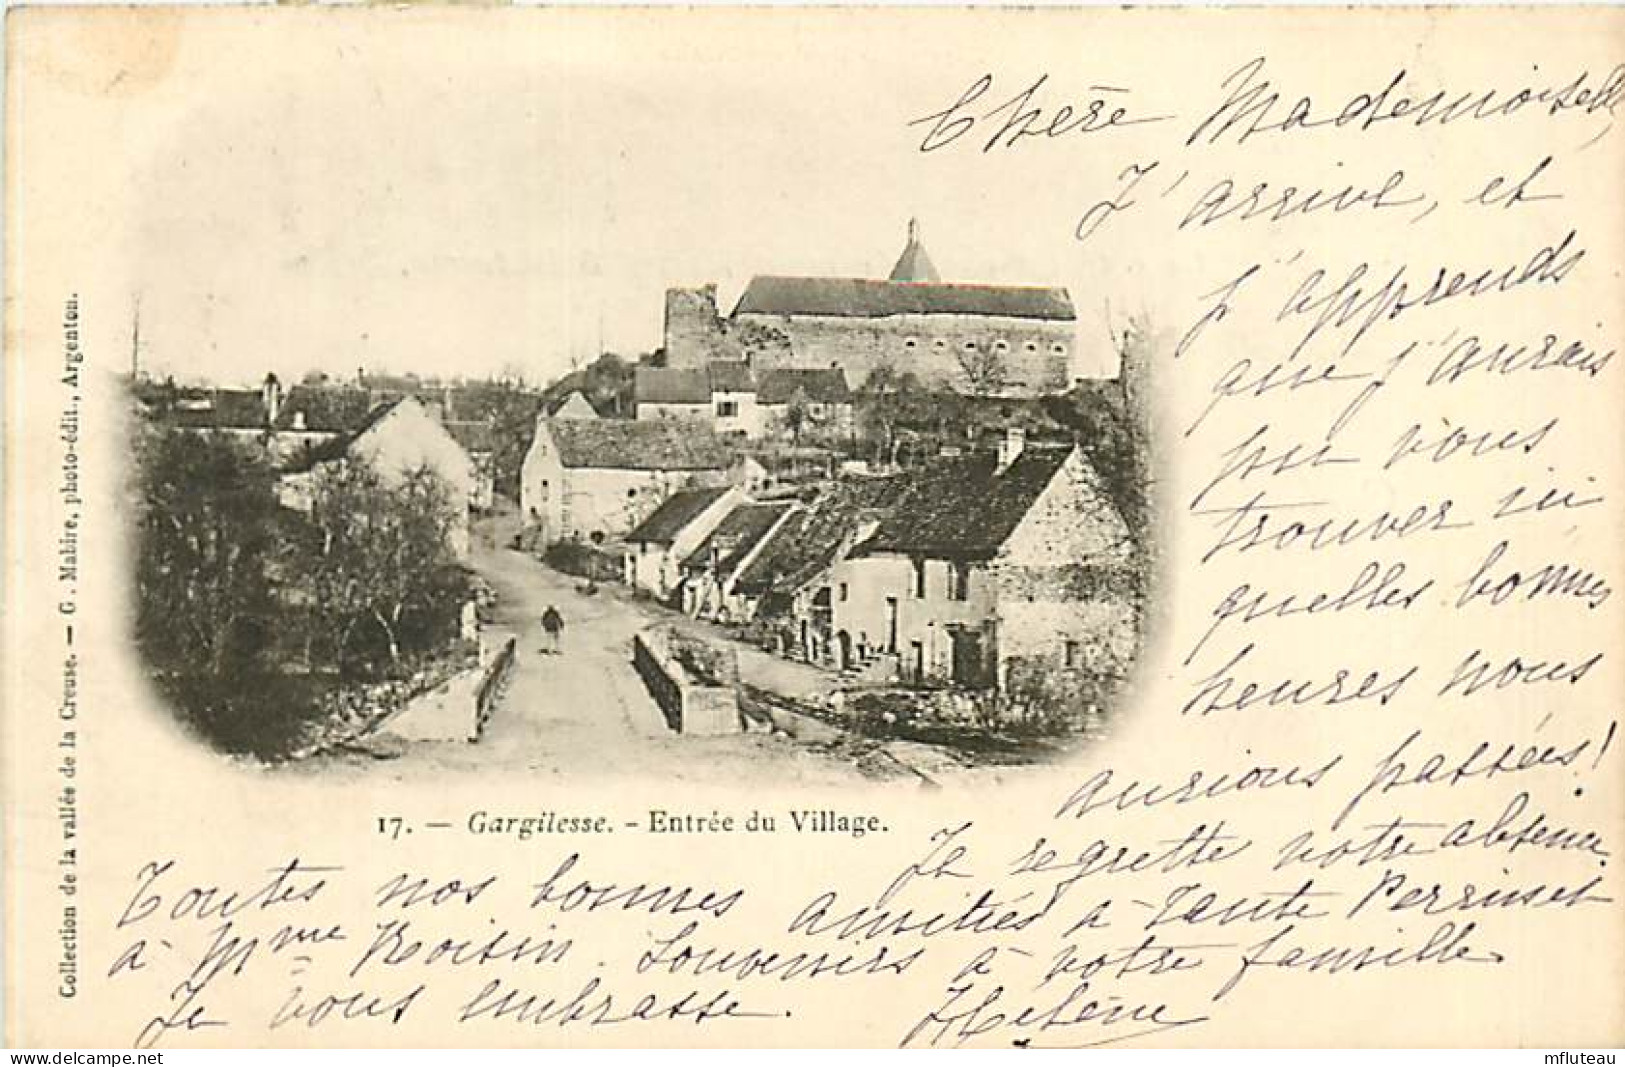 Chère Mademoiselle,
J'arrive, et
j'apprends
que j'aurais
pu vous
trouver ici
quelles bonnes
heures nous
aurions passées!
Je regrette votre absence.
Toutes nos bonnes amitiés à Tante Perrinet
à Mme Roisin. Souvenirs à votre famille
Je vous embrasse. Hélène
17. — Gargilesse. - Entrée du Village.
Collection de la vallée de la Creuse. — G. Mabire, photo-édit., Argenton.
www.delcampe.net
mfluteau